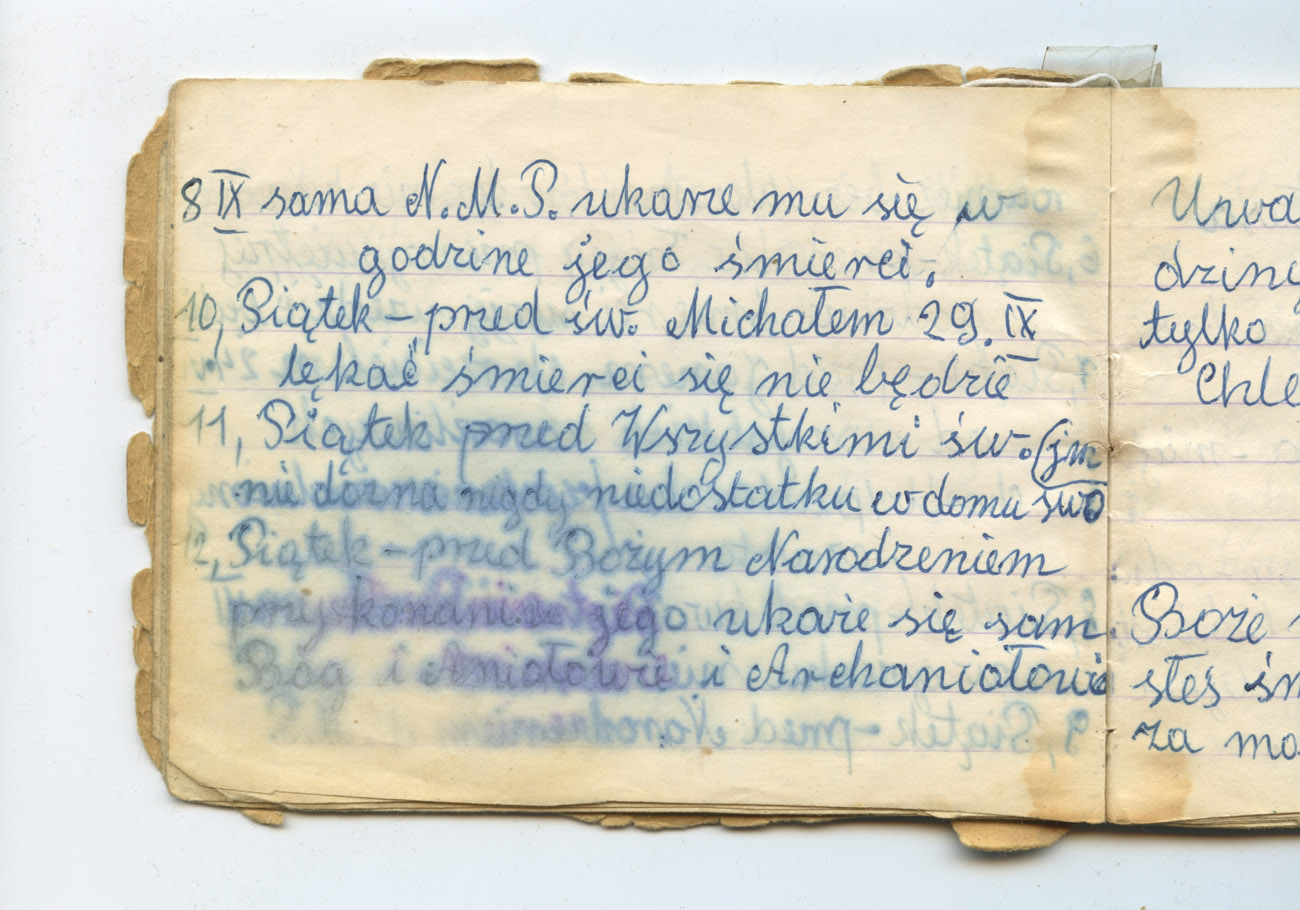 8 IX sama N.M.P. ukarze mu się w
godzine jego śmierci,
10, Piątek – przed św. Michałem 29. IX
lękać śmierci się nie będzie
11, Piątek przed Wszystkimi św. (jm
nie dozna nigdy niedostatku w domu swo
12, Piątek – przed Bożym Narodzeniem
przyskonaniu jego ukaże się sam
Bóg i Aniołowie i Archaniołowie
dziny
tylko
Chle
Boże
steś
za